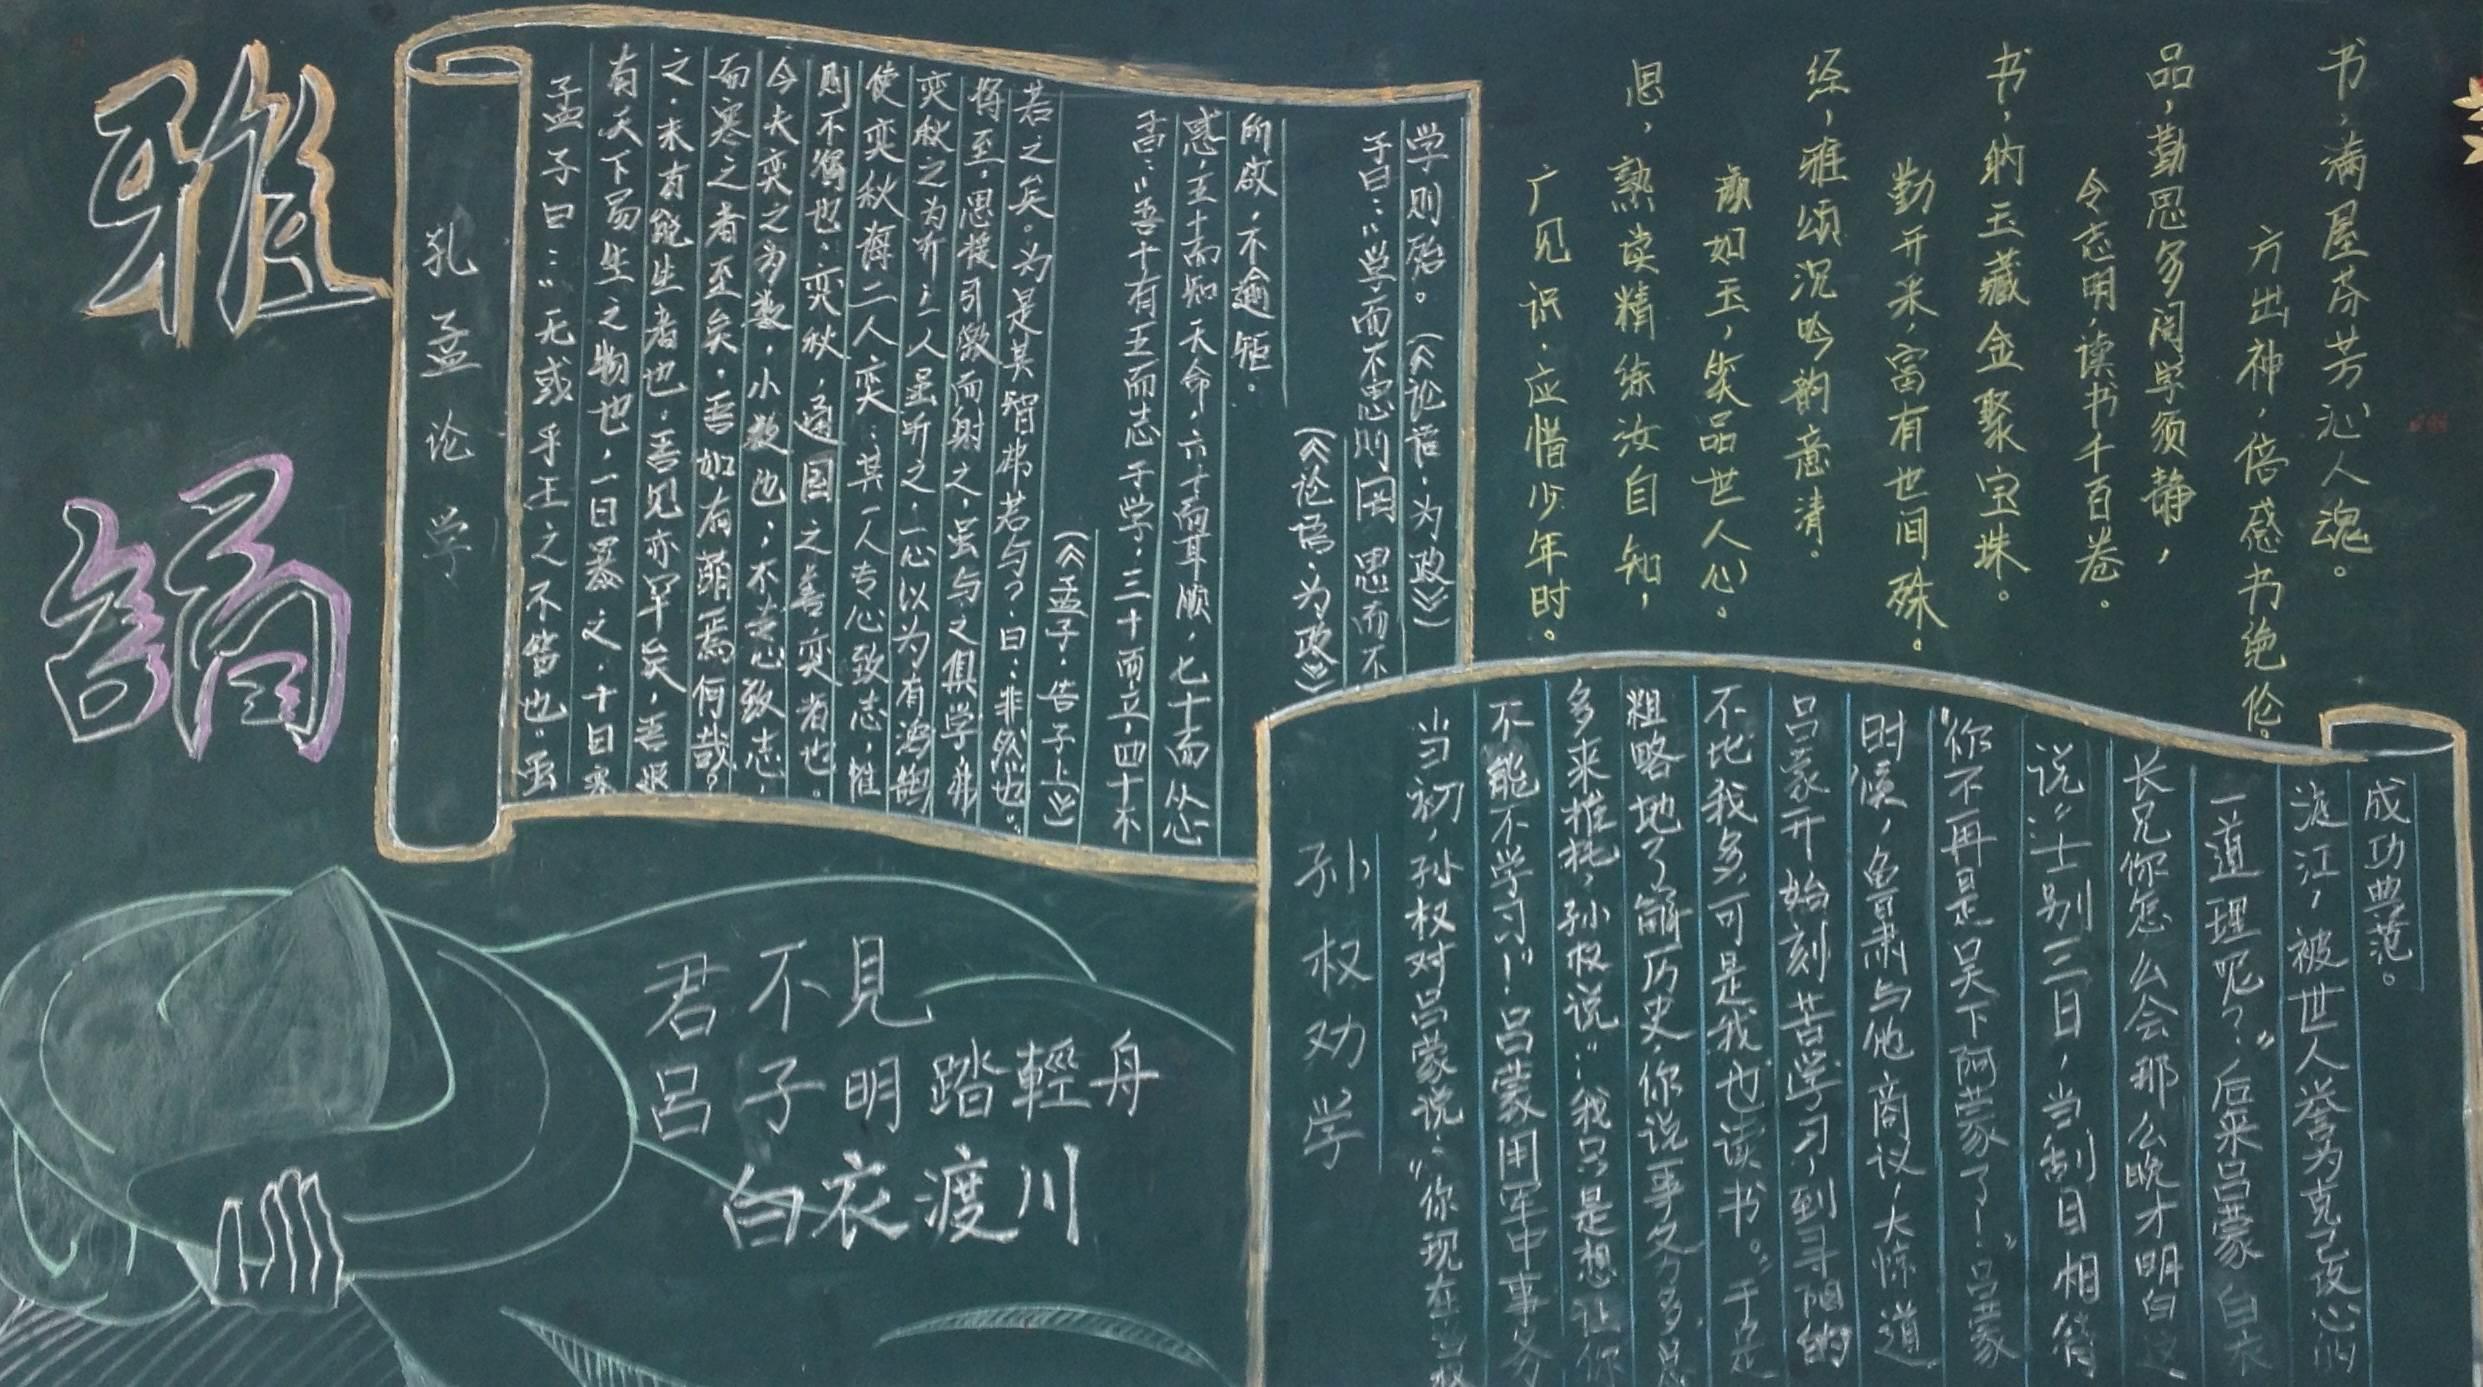 雅
謫
孔孟论学
孟子曰：“无或乎王之不智也。虽
有天下易生之物也，一日暴之，十日寒
之，未有能生者也。吾见亦罕矣，吾退
而寒之者至矣，吾如有萌焉何哉？
今夫弈之为数，小数也；不专心致志，
则不得也：弈秋，通国之善弈者也。
使弈秋诲二人弈：其一人专心致志，惟
弈秋之为听；一人虽听之，一心以为有鸿鹄
将至，思援弓缴而射之，虽与之俱学，弗
若之矣。为是其智弗若与？曰：非然也。”
（《孟子·告子上》）
子曰：“吾十有五而志于学，三十而立，四十不
惑，五十而知天命，六十而耳顺，七十而从心
所欲，不逾矩。
（《论语·为政》）
子曰：“学而不思则罔，思而不
学则殆。（《论语·为政》）
书，满屋芬芳沁人魂。
方出神，倍感书绝伦。
品，勤思多阅学须静，
令志明，读书千百卷。
书，纳玉藏金聚宝珠。
勤开采，富有世间殊。
经，雅颂沉吟韵意清。
颜如玉，笑品世人心。
思，熟读精练汝自知，
广见识，应惜少年时。
君不見
呂子明踏輕舟
白衣渡川
孙权劝学
当初，孙权对吕蒙说：“你现在当权
不能不学习！”吕蒙用军中事务
多来推托，孙权说：“我只是想让你
粗略地了解历史，你说事务多，总
不比我多，可是我也读书。”于是
吕蒙开始刻苦学习，到寻阳的
时候，鲁肃与他商议，大惊道
“你不再是吴下阿蒙了！”吕蒙
说“士别三日，当刮目相待
长兄你怎么会那么晚才明白这
一道理呢？”后来吕蒙白衣
渡江，被世人誉为克己攻心的
成功典范。